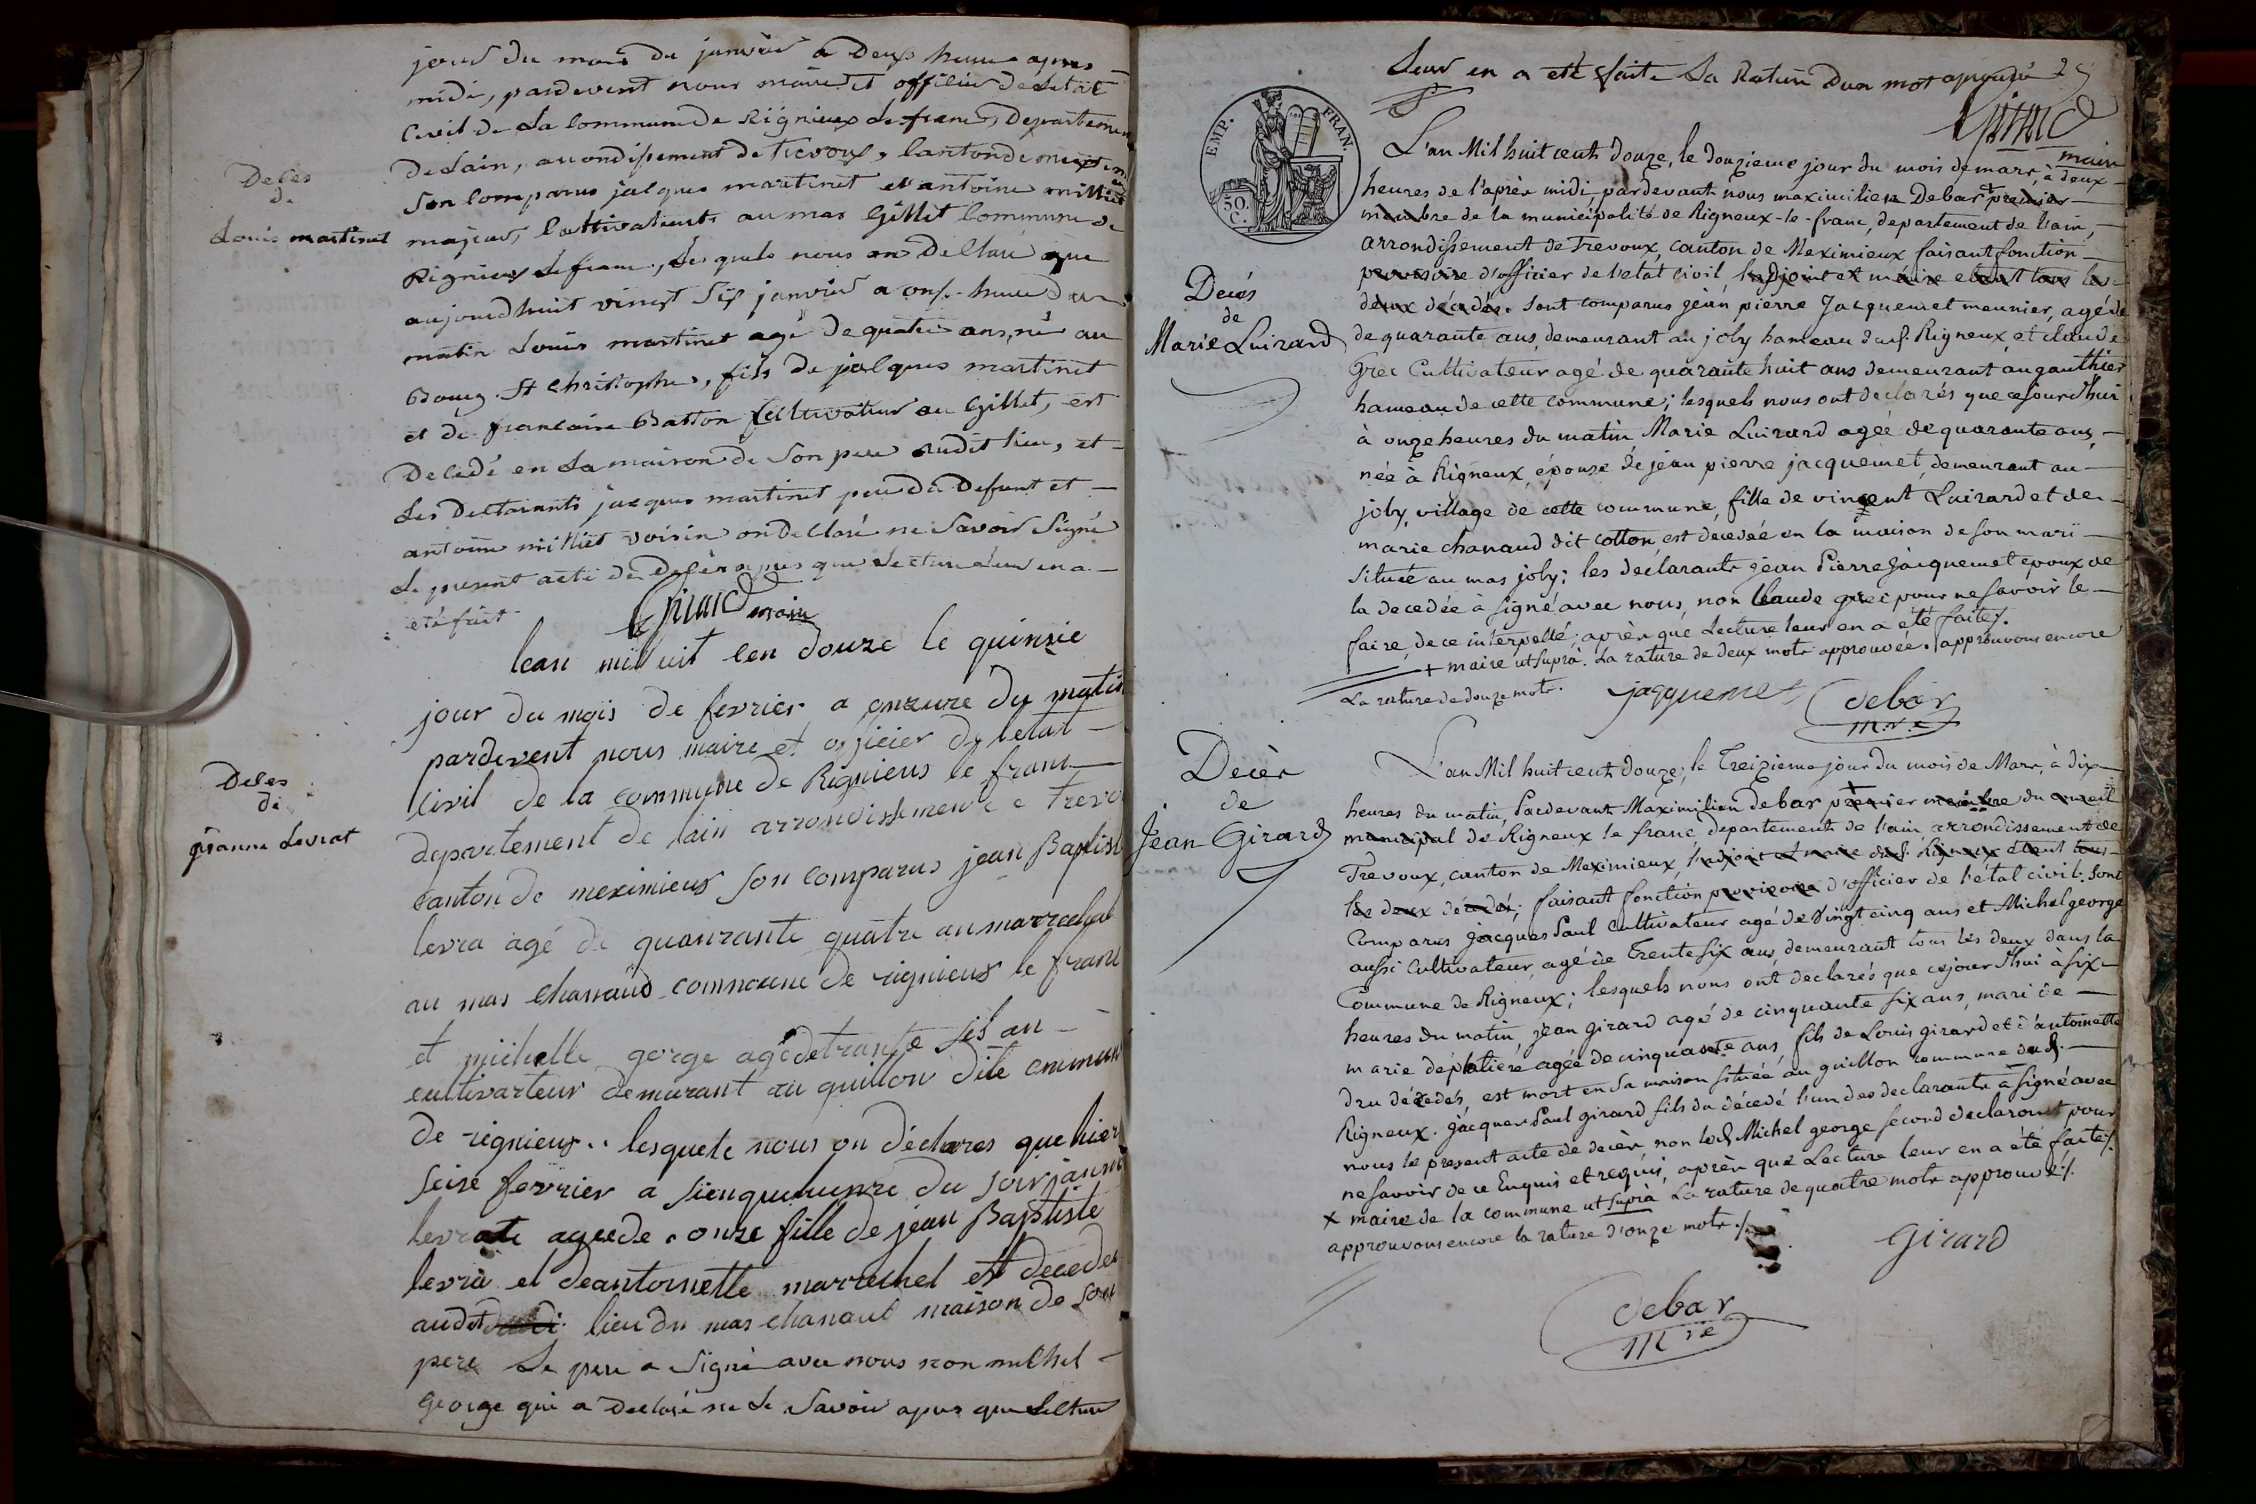 jour du mois de janvier a deux heure apres
midi, pardevent nous maire et officier de letat
Civil de la Commune de Rignieux le franc, departement
De Lain, arrondissement de Trevoux, Canton de meximieux
Son Comparus jacques martinet et antoine milliet
Deces
de
Louis martinet
majeurs, Cultivateurs au mas Gillet Commune de
Rignieux le franc, Lesquels nous on declaré que
aujourdhuit vingt six janvier a onze heure du
matin Louis martinet agé de quatre ans, né au
Bourg St Christophe, fils de jacques martinet
et de francoise Batton Cultivateur au Gillet, est
Decedé en la maison de Son pere audit lieu, et
Les Declarants jacques martinet pere du Defunt et
antoine milliet voisin on declaré ne Savoir Signé
Le present acte de decès apres que Lecture leur en a
eté fait
Girard maire
lean mil uit cen douze le quinsie
jour du mois de fevrier a onzure du matin
pardevent nous maire et officier de letat
Civil de la commune de Rignieus le franc
Deces
de
jeanne Levrat
departement de lain arrondissement de Trevo
canton de meximieus son comparus jean Baptist
levra agé de quanrante quatre an marrechal
au mas chanaud commune de rignieus le franc
et michelle gorge agé de trante sis an
cultivarteur demurant au guillon dite commune
de rignieus .. lesquele nous on declares que hier
seise fevrier a sienqueure du soir janne
levrate agee de onze fille de jean Baptiste
levra et deantoinette marrechel est decedee
audit lieu du mas chanaud maison de son
pere Le pere a Signé avec nous non michel
George qui a declaré ne Le Savoir apres que Lecture
Leur en a eté faite La Rature dun mot approuvé 25
Girard
maire
EMP. FRAN.
50. C.
L'an Mil huit cent douze, le douzieme jour du mois de mars, à deux
heures de l'après midi, pardevant nous maximilien Debar + premier
membre de la municipalité de Rigneux-le-franc, departement de l'ain,
arrondissement de Trevoux, canton de Meximieux faisant fonction
provisoire d'officier de l'etat civil, l'adjoint et maire etant tous les
Decés
de
Marie Luizard
deux décédés. Sont comparus jean pierre Jacquemet meunier, agé de
de quarante ans, demeurant au joly hameau dud. Rigneux, et claude
Grec Cultivateur agé de quarante huit ans demeurant au gauthier
hameau de cette commune; lesquels nous ont declarés que cejourd'hui
à onze heures du matin Marie Luizard agée de quarante ans,
née à Rigneux, épouse de jean pierre jacquemet, demeurant au
joly, village de cette commune, fille de vincent Luizard et de
marie chanaud dit cotton, est decedée en la maison de son mari
Située au mas joly; les declarants jean Pierre Jacquemet epoux de
la decedée à signé avec nous, non Claude grec pour ne savoir le
faire, de ce interpellé, après que Lecture leur en a été faite.
+ maire ut Suprà. La rature de deux mots approuvée. approuvons encore
La rature de douze mots. jacquemet debar
m.re
Decès
de
Jean Girard
L'an Mil huit cent douze, le Treizieme jour du mois de Mars, à dix
heures du matin, Pardevant Maximilien debar premier membre du conseil
municipal de Rigneux le franc, departement de l'ain, arrondissement de
Trevoux, canton de Meximieux, l'adjoint et maire dud. Rigneux etant tous
les deux décédés, faisant fonction provisoire d'officier de l'état civil. Sont
Comparus Jacques Paul Cultivateur agé de Vingt cinq ans et Michel george
aussi Cultivateur, agé de Trente six ans, demeurant tous les deux dans la
Commune de Rigneux; lesquels nous ont declarés que cejourd'hui à six
heures du matin, jean girard agé de cinquante six ans, mari de
marie déplatiere agée de cinquante ans, fils de Louis girard et d'antoinette
dru décedés, est mort en sa maison située au guillon commune dud.
Rigneux. jacques Paul girard fils du décedé l'un des declarants à signé avec
nous le present acte de decès, non led. Michel george second declarant pour
ne savoir de ce Enquis et requis, après que Lecture leur en a été faite.
x maire de la commune ut suprà La rature de quatre mots approuvé.
approuvons encore la rature d'onze mots.
Girard
debar
m.re